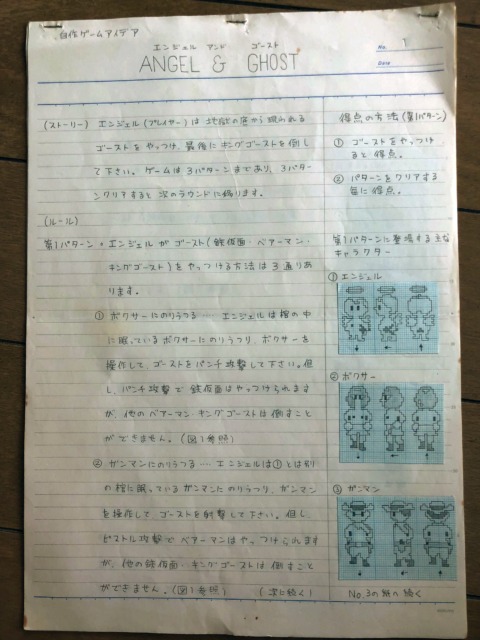 自作ゲームアイデア
エンジェル アンド ゴースト
ANGEL & GHOST
No. 1
Date
(ストーリー) エンジェル(プレイヤー)は地獄の底から現われる
ゴーストをやっつけ、最後にキングゴーストを倒し
て下さい。ゲームは3パターンまであり、3パター
ンクリアすると次のラウンドに移ります。
(ルール)
第1パターン・エンジェルがゴースト(鉄仮面・ベアーマン・
キングゴースト)をやっつける方法は3通りあ
ります。
① ボクサーにのりうつる…… エンジェルは棺の中
に眠っているボクサーにのりうつり、ボクサーを
操作して、ゴーストをパンチ攻撃して下さい。但
し、パンチ攻撃で鉄仮面はやっつけられます
が、他のベアーマン・キングゴーストは倒すこと
ができません。(図1参照)
② ガンマンにのりうつる…. エンジェルは①とは別
の棺に眠っているガンマンにのりうつり、ガンマン
を操作して、ゴーストを射撃して下さい。但し、
ピストル攻撃でベアーマンはやっつけられます
が、他の鉄仮面・キングゴーストは倒すこと
ができません。(図1参照) (次に続く)
得点の方法(第1パターン)
① ゴーストをやっつけ
ると得点。
② パターンをクリアする
毎に得点。
第1パターンに登場する主な
キャラクター
① エンジェル
② ボクサー
③ ガンマン
No.3の紙へ続く